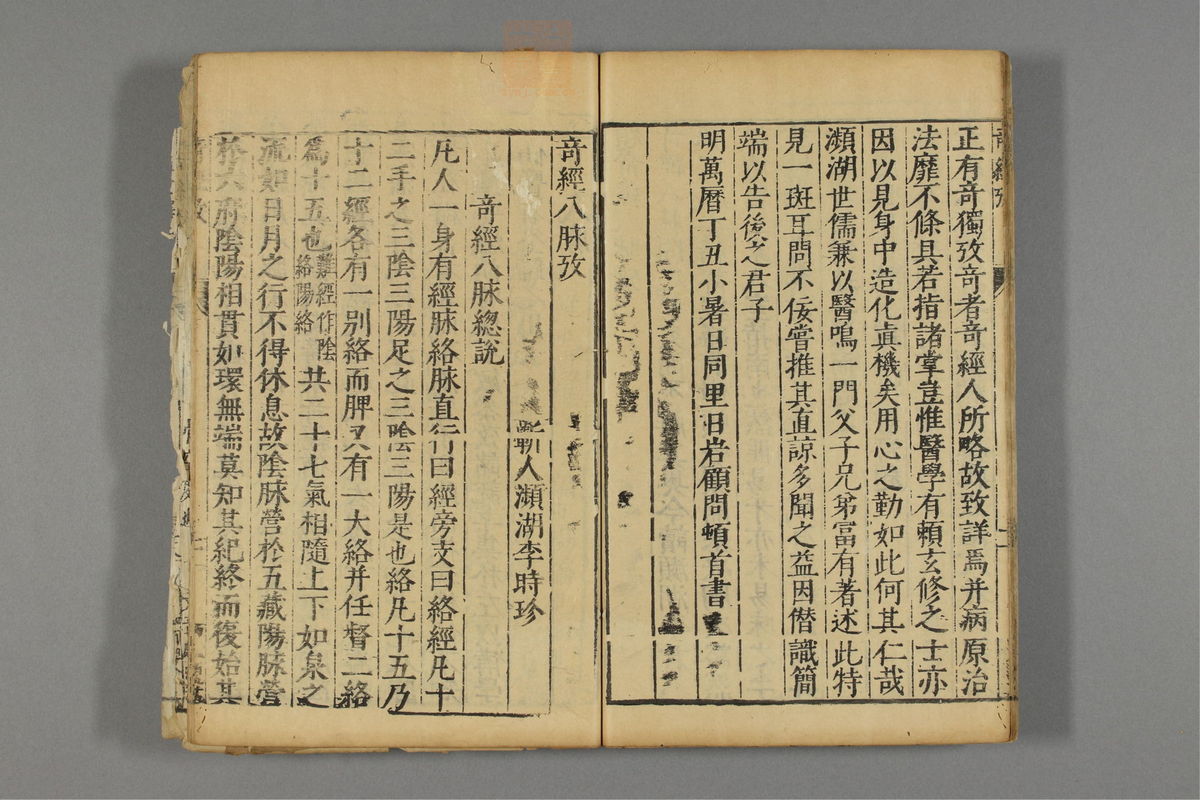 正有奇獨攷奇者奇經人所略故致詳焉并病原治
法靡不條具若指諸掌豈惟醫學有賴玄修之士亦
因以見身中造化眞機矣用心之勤如此何其仁哉
瀕湖世儒兼以醫鳴一門父子兄弟富有著述此特
見一斑耳問不佞嘗推其直諒多聞之益因僭識簡
端以告後之君子
明萬曆丁丑小暑日同里日岩顧問頓首書
奇經八脉攷
蘄人瀕湖李時珍
奇經八脉總說
凡人一身有經脉絡脉直行曰經旁支曰絡經凡十
二手之三陰三陽足之三陰三陽是也絡凡十五乃
十二經各有一別絡而脾又有一大絡并任督二絡
爲十五也難經作陰絡陽絡共二十七氣相隨上下如泉之
流如日月之行不得休息故陰脉營於五藏陽脉營
於六府陰陽相貫如環無端莫知其紀終而復始其